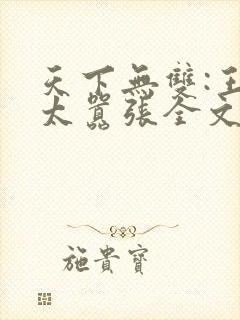 天下無雙:王
太囂張全文
施貴寶